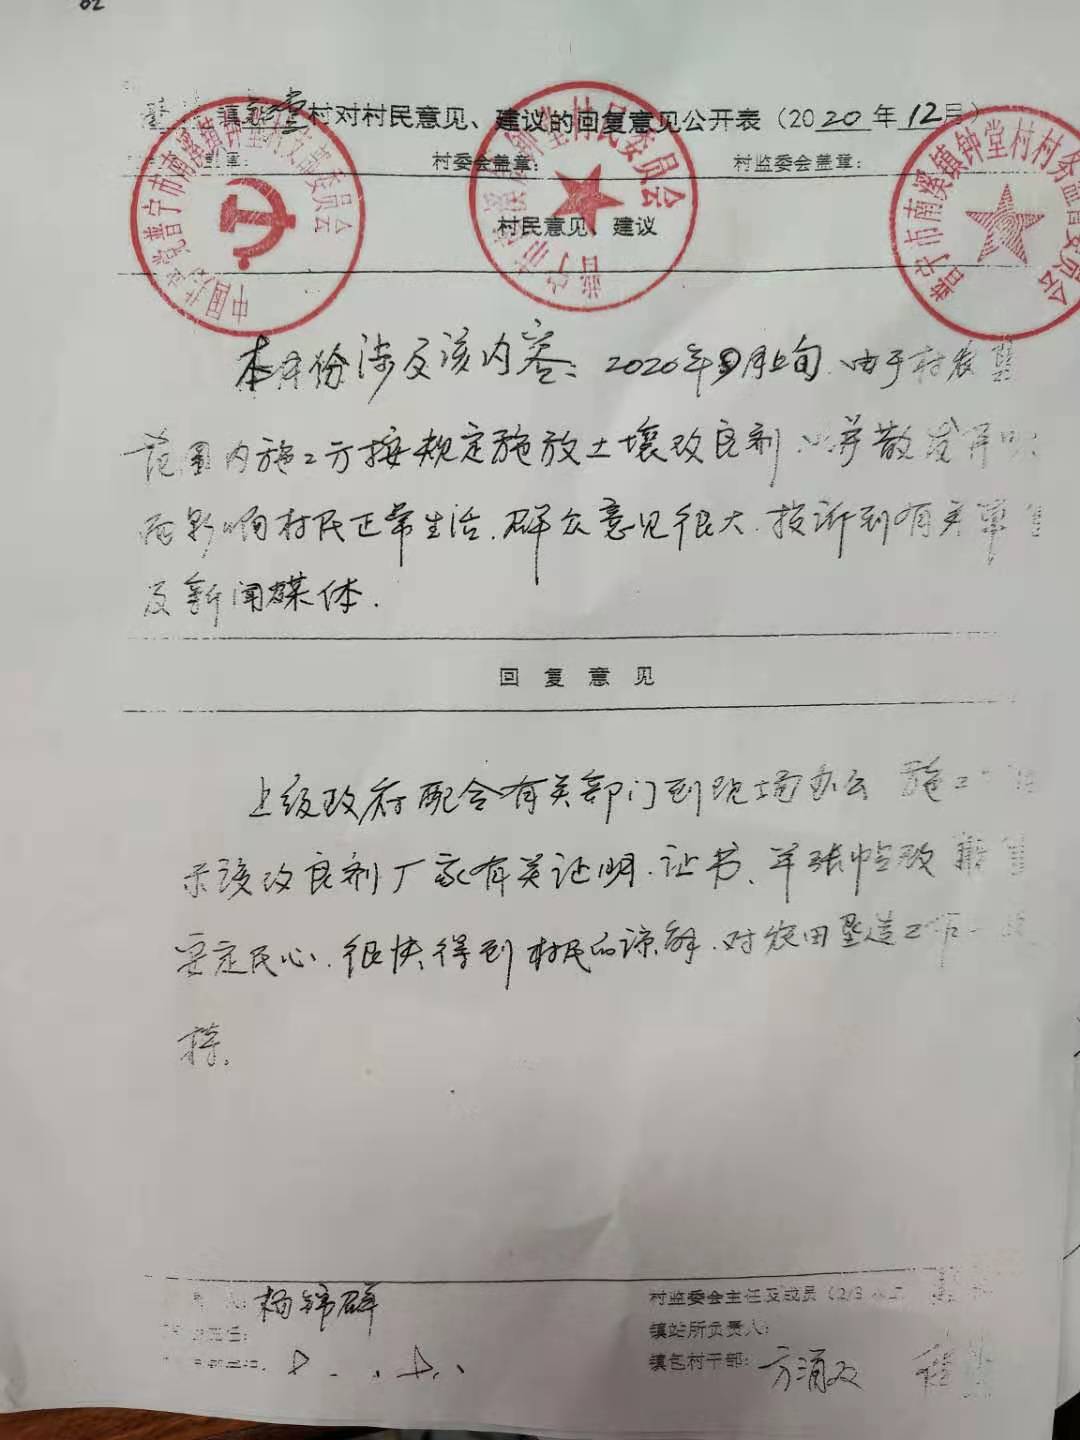 02
镇钟堂村对村民意见、建议的回复意见公开表（2020年12月）
盖章： 村委会盖章： 村监委会盖章：
中国共产党普宁市南溪镇钟堂村支部委员会
普宁市南溪镇钟堂村民委员会
普宁市南溪镇钟堂村村务监督委员会
村民意见、建议
本月份涉及该内容：2020年 月上旬，由于村农垦
范围内施工方按规定施放土壤改良剂，并散发异味
而影响村民正常生活，群众意见很大，投诉到有关单位
及新闻媒体．
回复意见
上级政府配合有关部门到现场办公 施工
示该改良剂厂家有关证明、证书、
安定民心．很快得到村民的谅解．对农田垦造工作
持．
杨锦群
村监委会主任及成员（2/3
主任：
镇站所负责人：
镇包村干部：